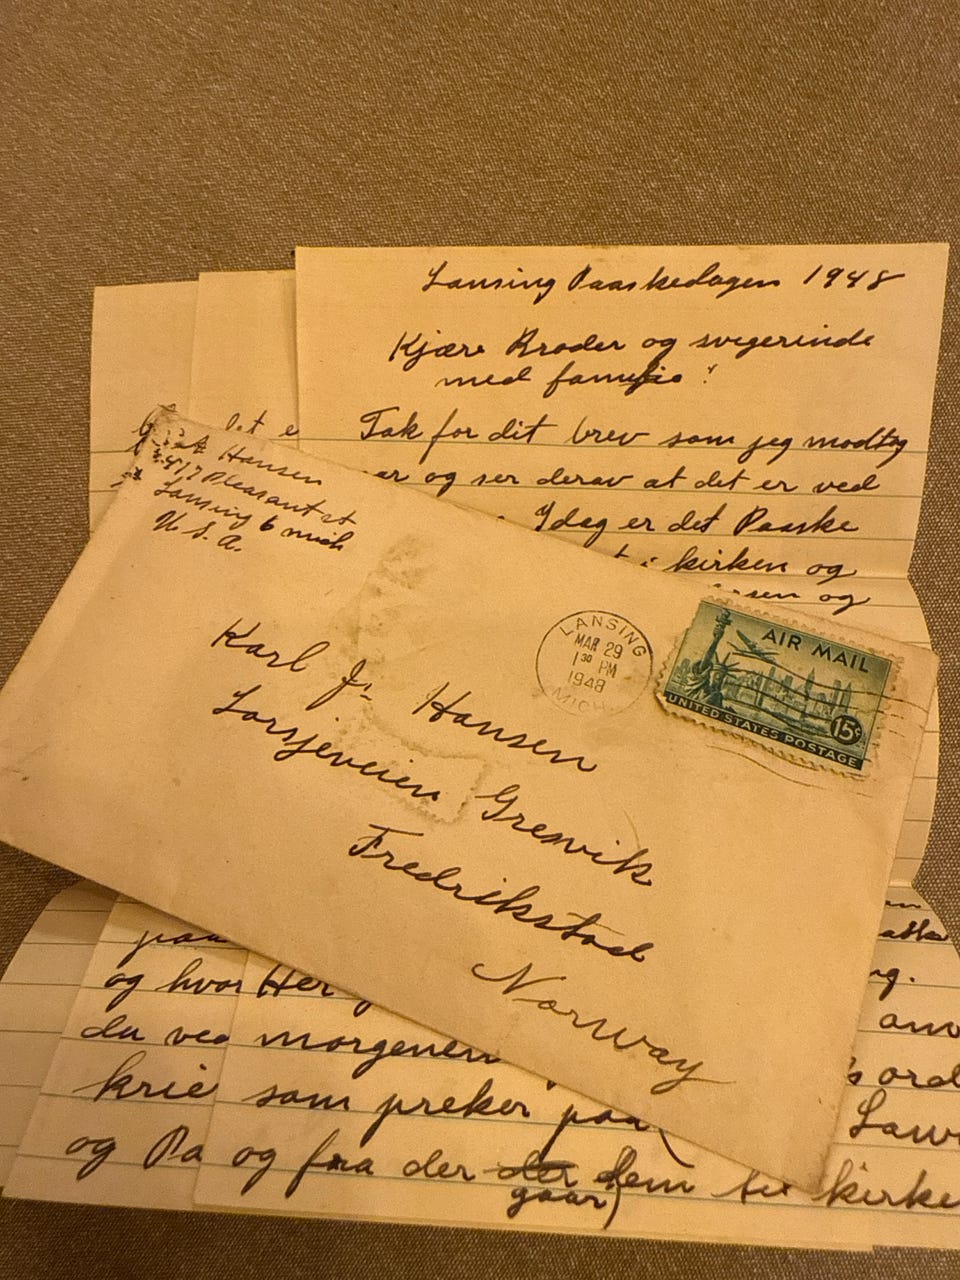 Lansing Paaskedagen 1948
Kjære Broder og svigerinde
med familie!
Tak for dit brev som jeg modtog
og ser derav at det er ved
Idag er det Paaske
i kirken og
og
det e
Hansen
417 Pleasant st
Lansing 6 mich
U. S. A.
LANSING
MAR 29
1 30 PM
1948
MICH
AIR MAIL
UNITED STATES POSTAGE
15¢
Karl J. Hansen
Lorsjeveien Gresvik
Fredrikstad
Norway
paa
og hvor Her
du ved morgenen
som preker paa
og Pa og fra der dem til kirke
gaar)